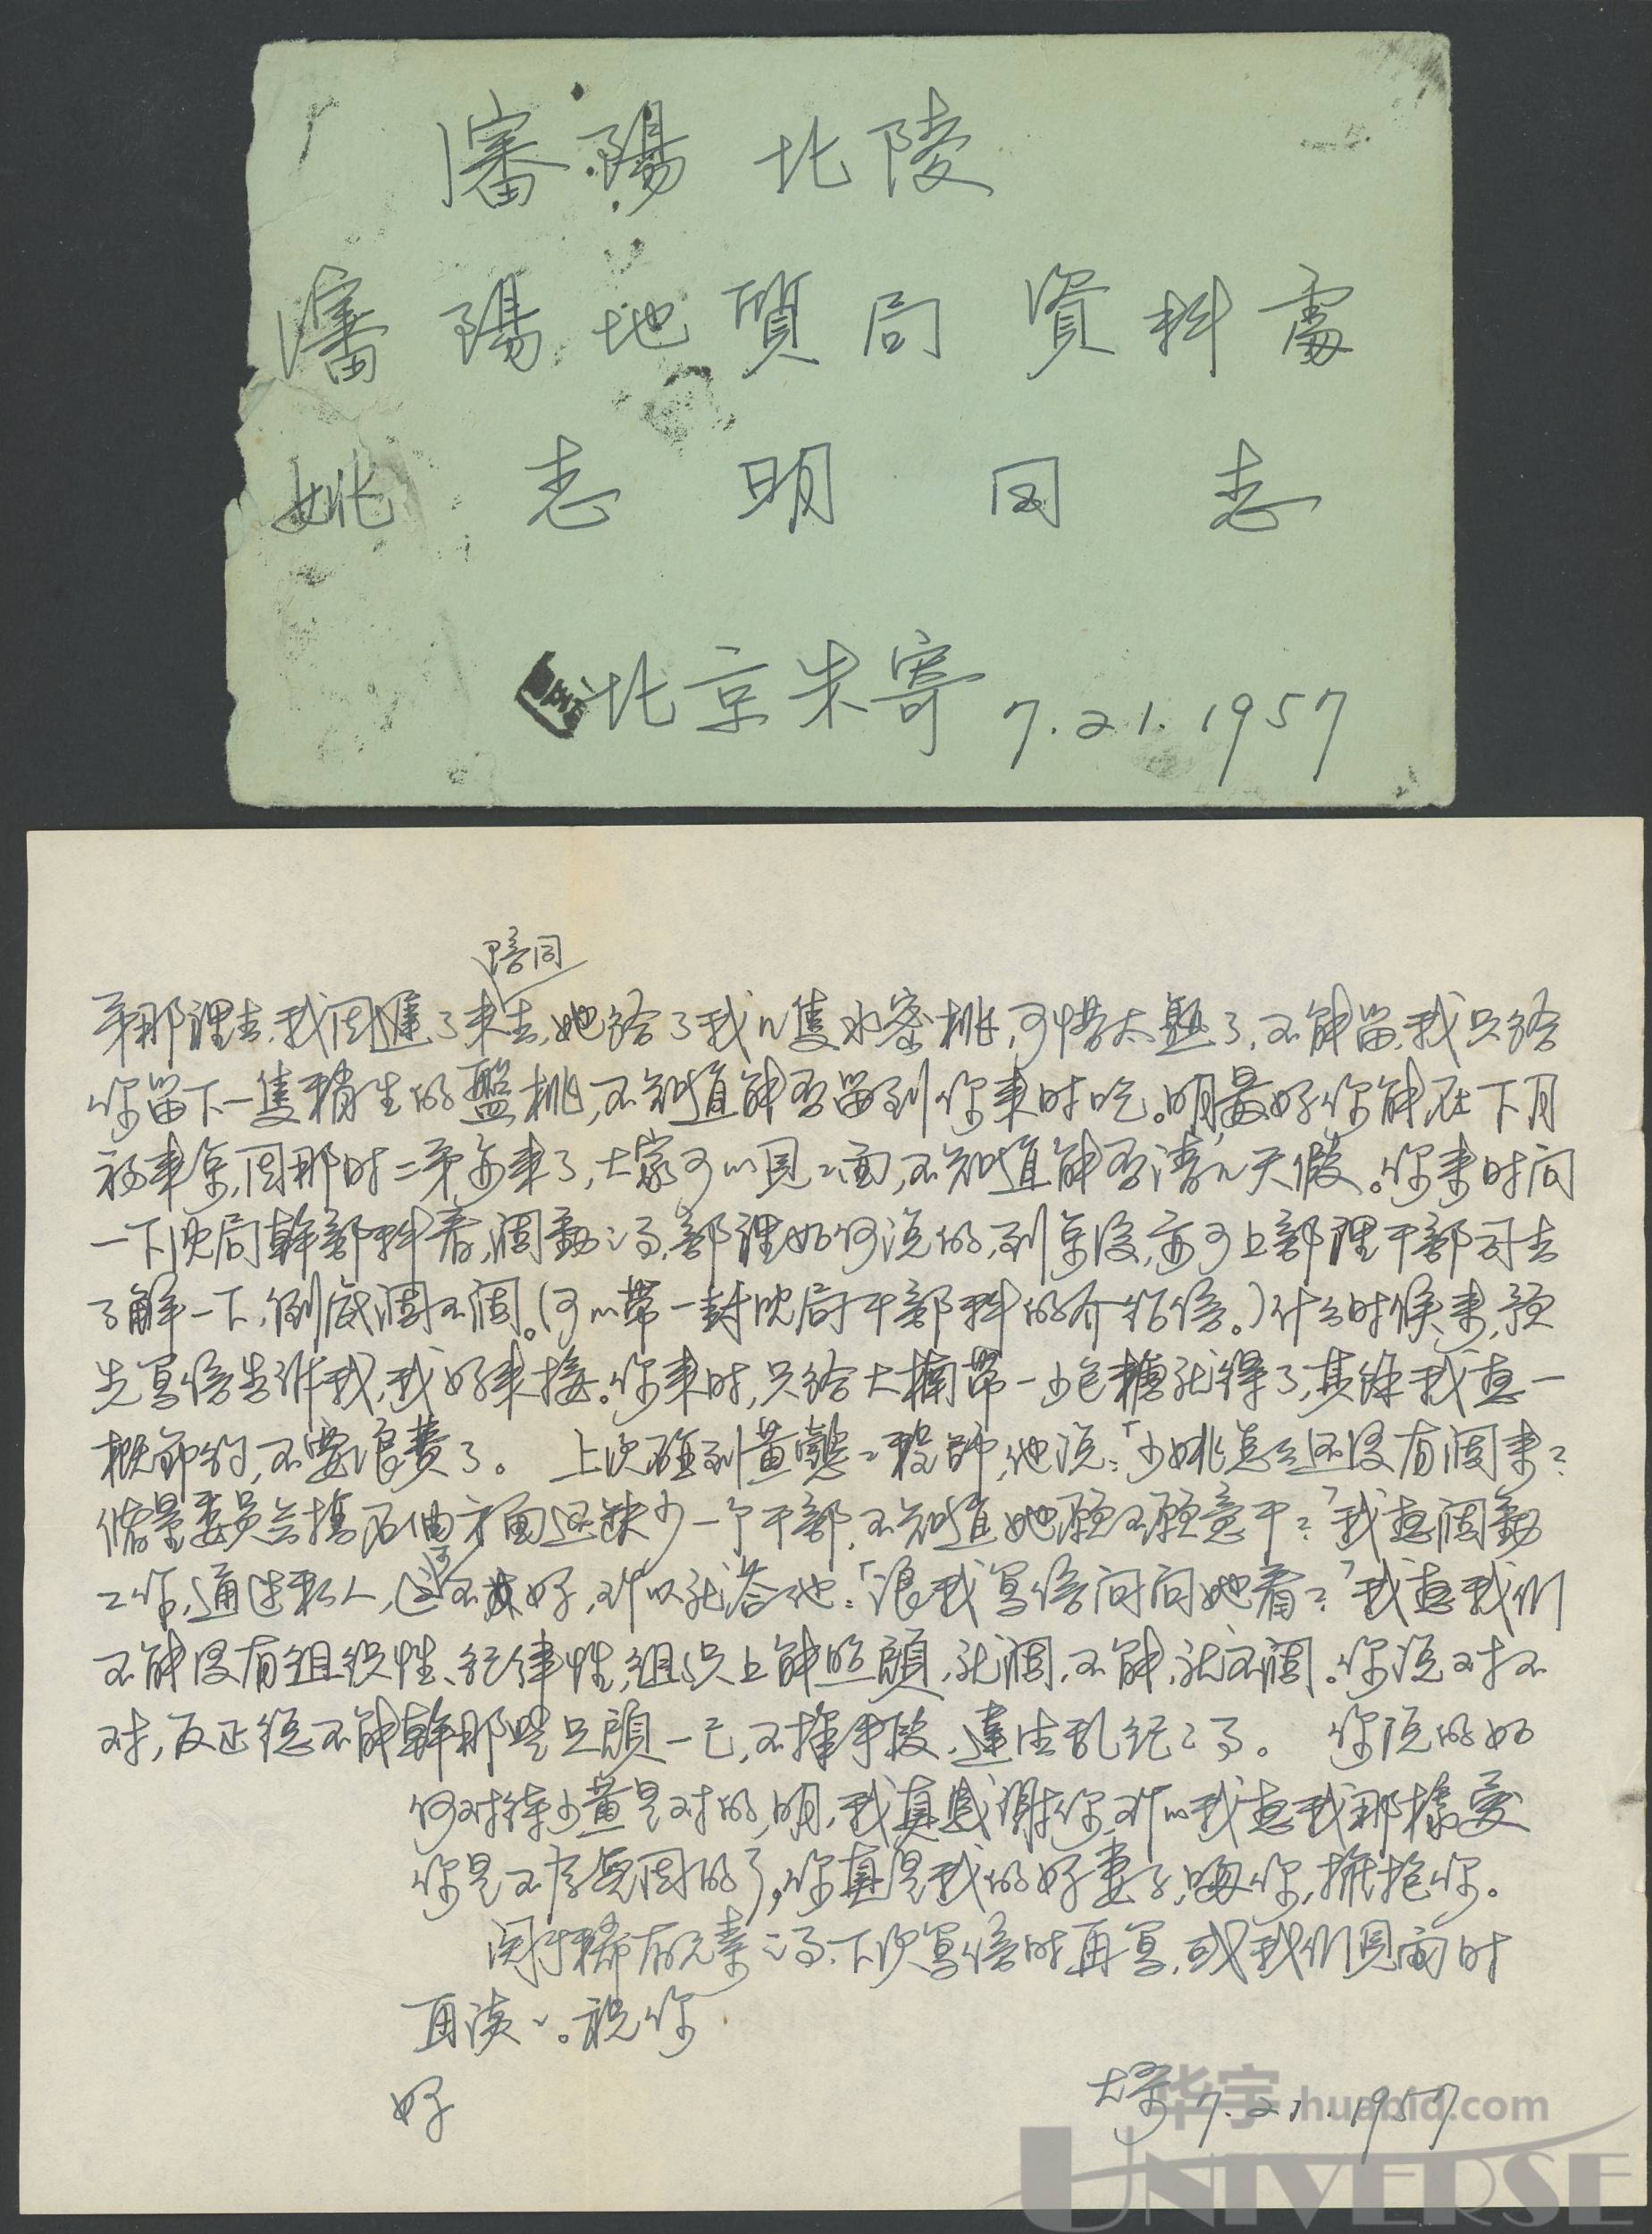 瀋陽 北陵
瀋陽地質局資料處
姚志明同志
北京朱寄 7.21.1957
陪同
弟那裡去,我同進了来去,她給了我几隻水蜜桃,可惜太熟了,不能留,我只給
你留下一隻稍生的蟠桃,不知道能否留到你来时吃。明最好你能在下月
初来京,因那时二弟亦来了,大家可以見見面,不知道能否請几天假。你来时问
一下沈局幹部科看,调動之事,部裡如何说的,到京後,亦可上部裡干部司去
了解一下,倒底调不调。(可以带一封沈局干部科的介绍信。)什么时候来,预
先寫信告诉我,我好来接。你来时,只給大楠带一少包糖就得了,其餘我意一
概節約,不要浪費了。 上次碰到黄懿工程師,他说:「少姚怎么还没有调来?
儲量委員会搞石油方面还缺少一个干部,不知道她願不願意干?」我想调動
工作,通过私人,这不太好,所以就答他:「讓我寫信问问她看?」我想我们
不能没有组织性、纪律性,组织上能照顧,就调,不能,就不调。你说对不
对,反正總不能幹那些只顧一己,不择手段、違法乱纪之事。 你说的如
何对待少黄是对的,明,我真感谢你,所以我想我那樣爱
你是不序無因的了,你真是我的好妻子,吻你,擁抱你。
関於稀有元素之事,下次寫信时再寫,或我们見面时
再談之。祝你
好
7.21.1957
华宇 huabid.com
UNIVERSE